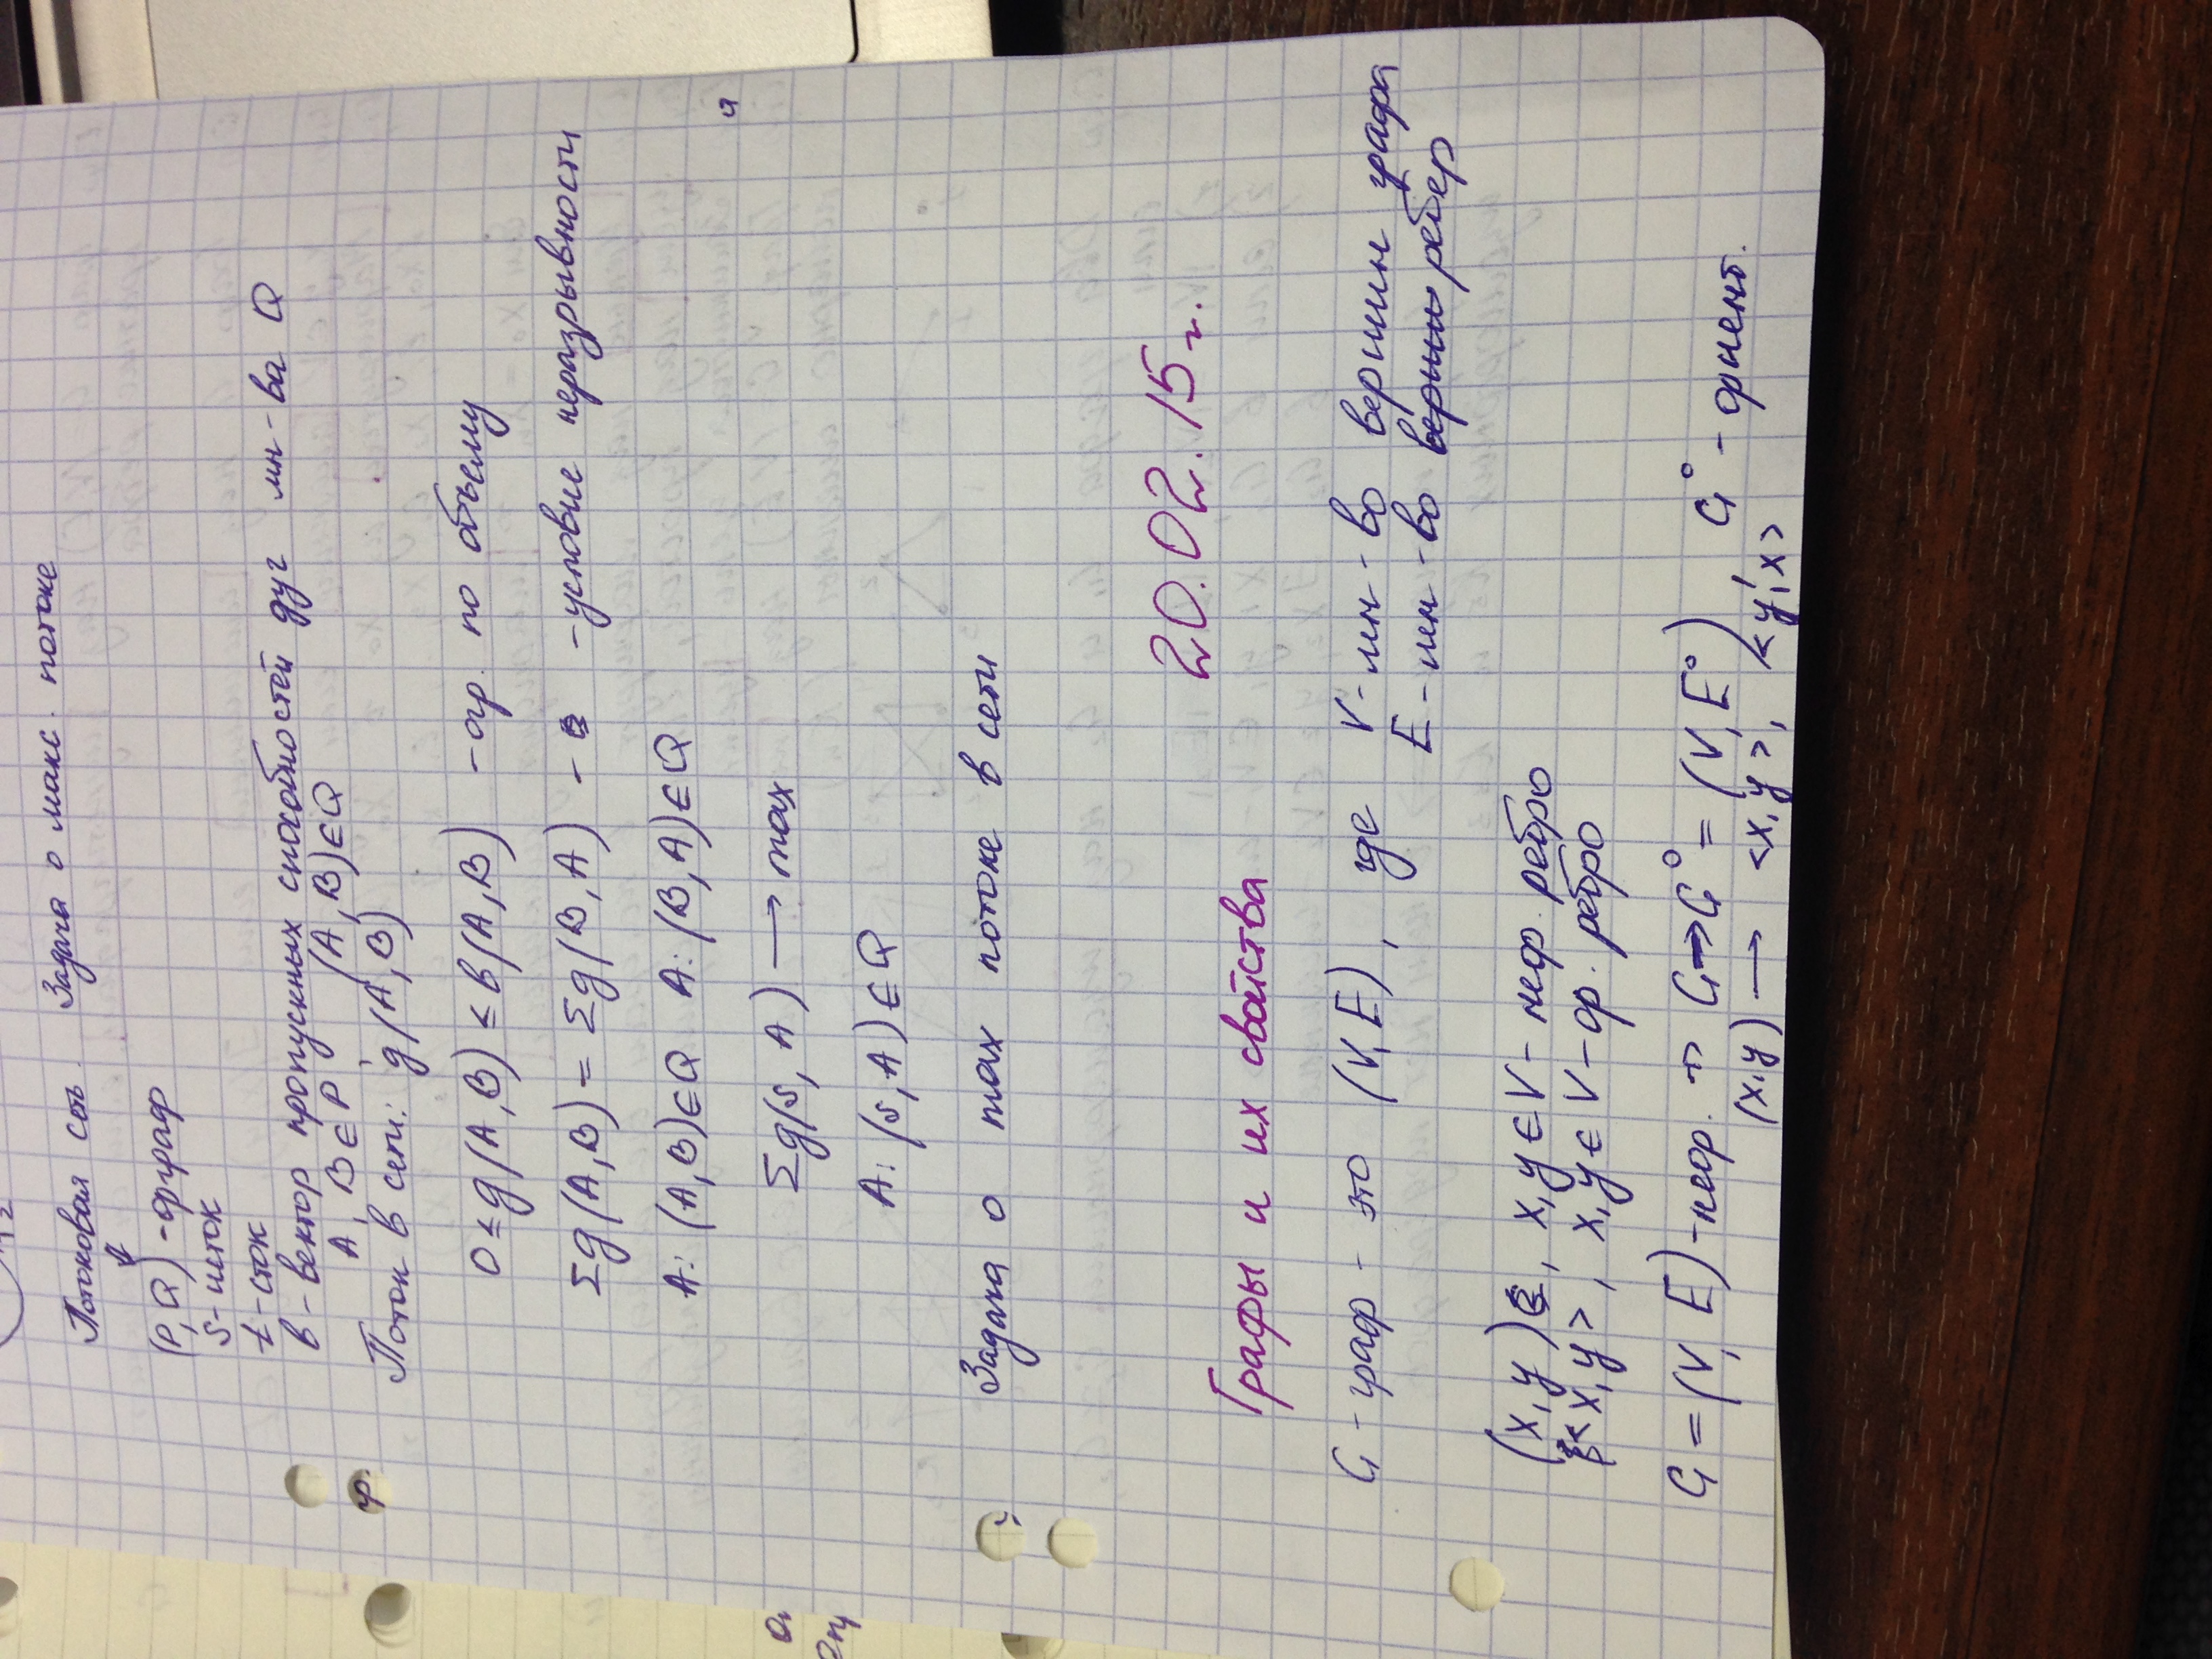 Потоковая сеть. Задача о макс. потоке
(P, Q) - орграф
S - исток
t - сток
в - вектор пропускных способностей дуг мн-ва Q
A, B ∈ P (A, B) ∈ Q
Поток в сети: g(A, B)
0 ≤ g(A, B) ≤ в(A, B) - огр. по объему
Σg(A, B) = Σg(B, A) - - условие неразрывности
A: (A, B) ∈ Q A: (B, A) ∈ Q
Σg(s, A) → max
A: (s, A) ∈ Q
Задача о max потоке в сети
20.02.15 г.
Графы и их свойства
G - граф - это (V, E), где V - мн-во вершин графа
E - мн-во верши ребер
(x, y), x, y ∈ V - неор. ребро
<x, y>, x, y ∈ V - ор. ребро
G = (V, E) - неор. → G → G° = (V, E°) G° - ориент.
(x, y) → <x, y>, <y, x>